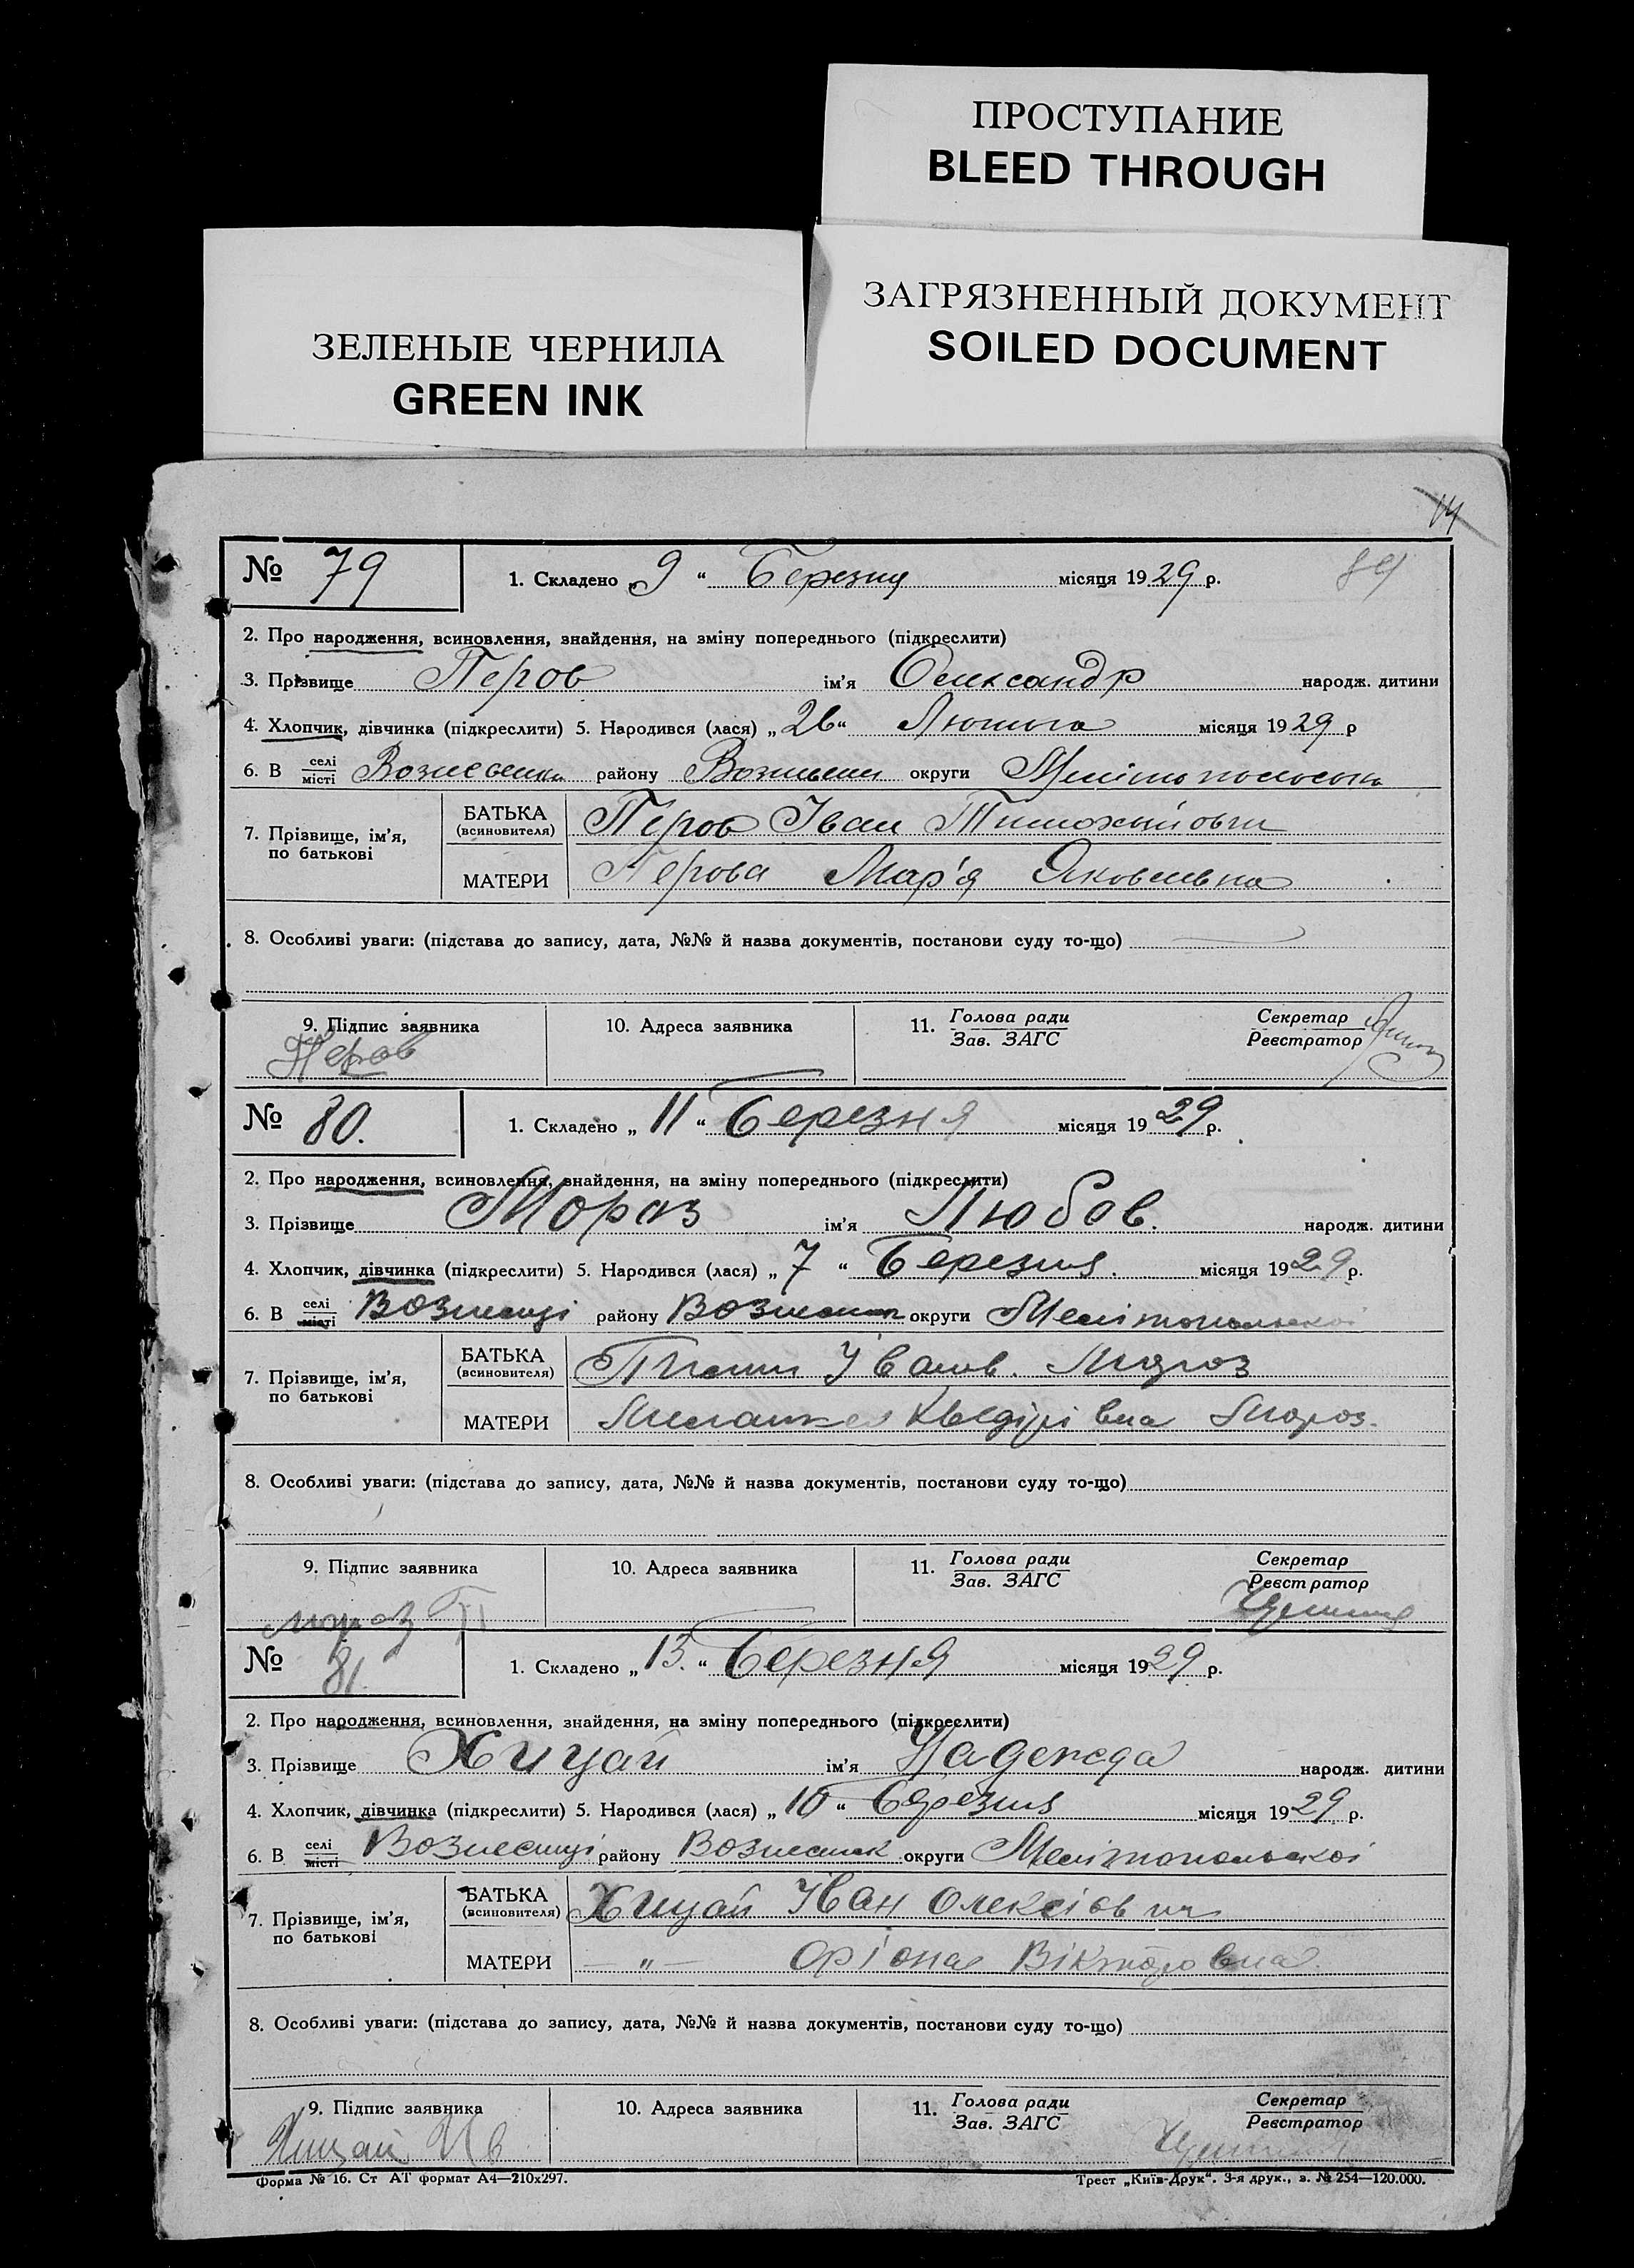 ПРОСТУПАНИЕ
BLEED THROUGH
ЗАГРЯЗНЕННЫЙ ДОКУМЕНТ
SOILED DOCUMENT
ЗЕЛЕНЫЕ ЧЕРНИЛА
GREEN INK
14
№ 79 1. Складено „ 9 “ Березня місяця 1929 р.
2. Про народження, всиновлення, знайдення, на зміну попереднього (підкреслити)
3. Прізвище Перов ім’я Олександр народж. дитини
4. Хлопчик, дівчинка (підкреслити) 5. Народився (лася) „ 26 “ Лютого місяця 1929 р
6. В селі місті Вознесенка району Вознесен округи Мелітопольська
7. Прізвище, ім’я, по батькові БАТЬКА (всиновителя) Перов Іван Тимохвійович
МАТЕРИ Перова Мар'я Яковлевна
8. Особливі уваги: (підстава до запису, дата, №№ й назва документів, постанови суду то-що)
9. Підпис заявника 10. Адреса заявника 11. Голова ради Зав. ЗАГС Секретар Реєстратор
Перов
№ 80. 1. Складено „ 11 “ Березня місяця 1929 р.
2. Про народження, всиновлення, знайдення, на зміну попереднього (підкреслити)
3. Прізвище Мороз ім’я Любов. народж. дитини
4. Хлопчик, дівчинка (підкреслити) 5. Народився (лася) „ 7 “ Березня. місяця 1929 р.
6. В селі місті Вознесенці району Вознесенк округи Мелітопольської
7. Прізвище, ім’я, по батькові БАТЬКА (всиновителя) Іванов. Мороз
МАТЕРИ Хведірівна Мороз.
8. Особливі уваги: (підстава до запису, дата, №№ й назва документів, постанови суду то-що)
9. Підпис заявника 10. Адреса заявника 11. Голова ради Зав. ЗАГС Секретар Реєстратор
Мороз П
№ 81. 1. Складено „ 13. “ Березня місяця 1929 р.
2. Про народження, всиновлення, знайдення, на зміну попереднього (підкреслити)
3. Прізвище Хицай ім’я Надежда народж. дитини
4. Хлопчик, дівчинка (підкреслити) 5. Народився (лася) „ 10 “ Березня місяця 1929 р.
6. В селі місті Вознесенці району Вознесенк округи Мелітопольської
7. Прізвище, ім’я, по батькові БАТЬКА (всиновителя) Хицай Іван Олексіович
МАТЕРИ — „ — Вікторовна.
8. Особливі уваги: (підстава до запису, дата, №№ й назва документів, постанови суду то-що)
9. Підпис заявника 10. Адреса заявника 11. Голова ради Зав. ЗАГС Секретар Реєстратор
Хицай Ив
Форма № 16. Ст АТ формат А4—210х297. Трест „Київ-Друк“. 3-я друк., з. № 254—120.000.